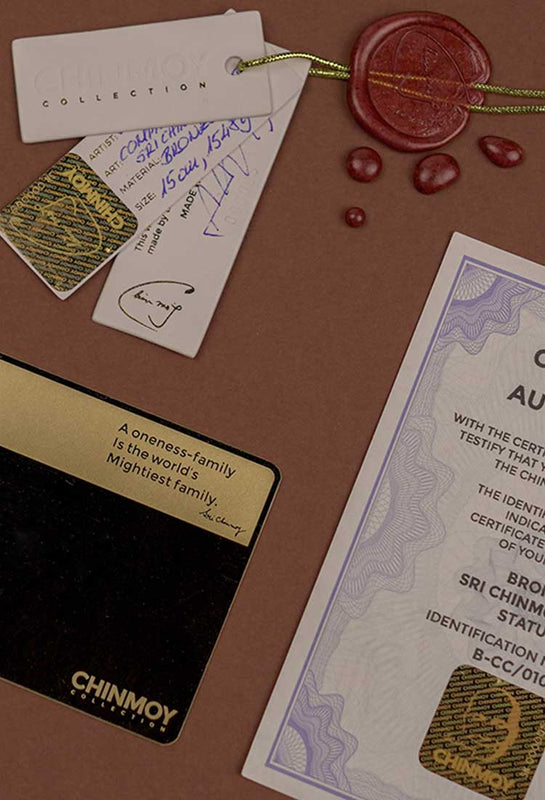 CHINMOY
COLLECTION
ARTIST:
ART:
SRI CHIN
MATERIAL: BRONZE
SIZE: 15cm, 1541g
This
made by
MADE
CHINMOY
A oneness-family
Is the world's
Mightiest family.
Sri Chinmoy
CHINMOY
COLLECTION
C
AU
WITH THE CERT
TESTIFY THAT Y
THE CHIN
THE IDENTIF
INDICA
CERTIFICATE
OF YOUR
BRON
SRI CHINMO
STATU
IDENTIFICATION N
B-CC/010
CHINMOY